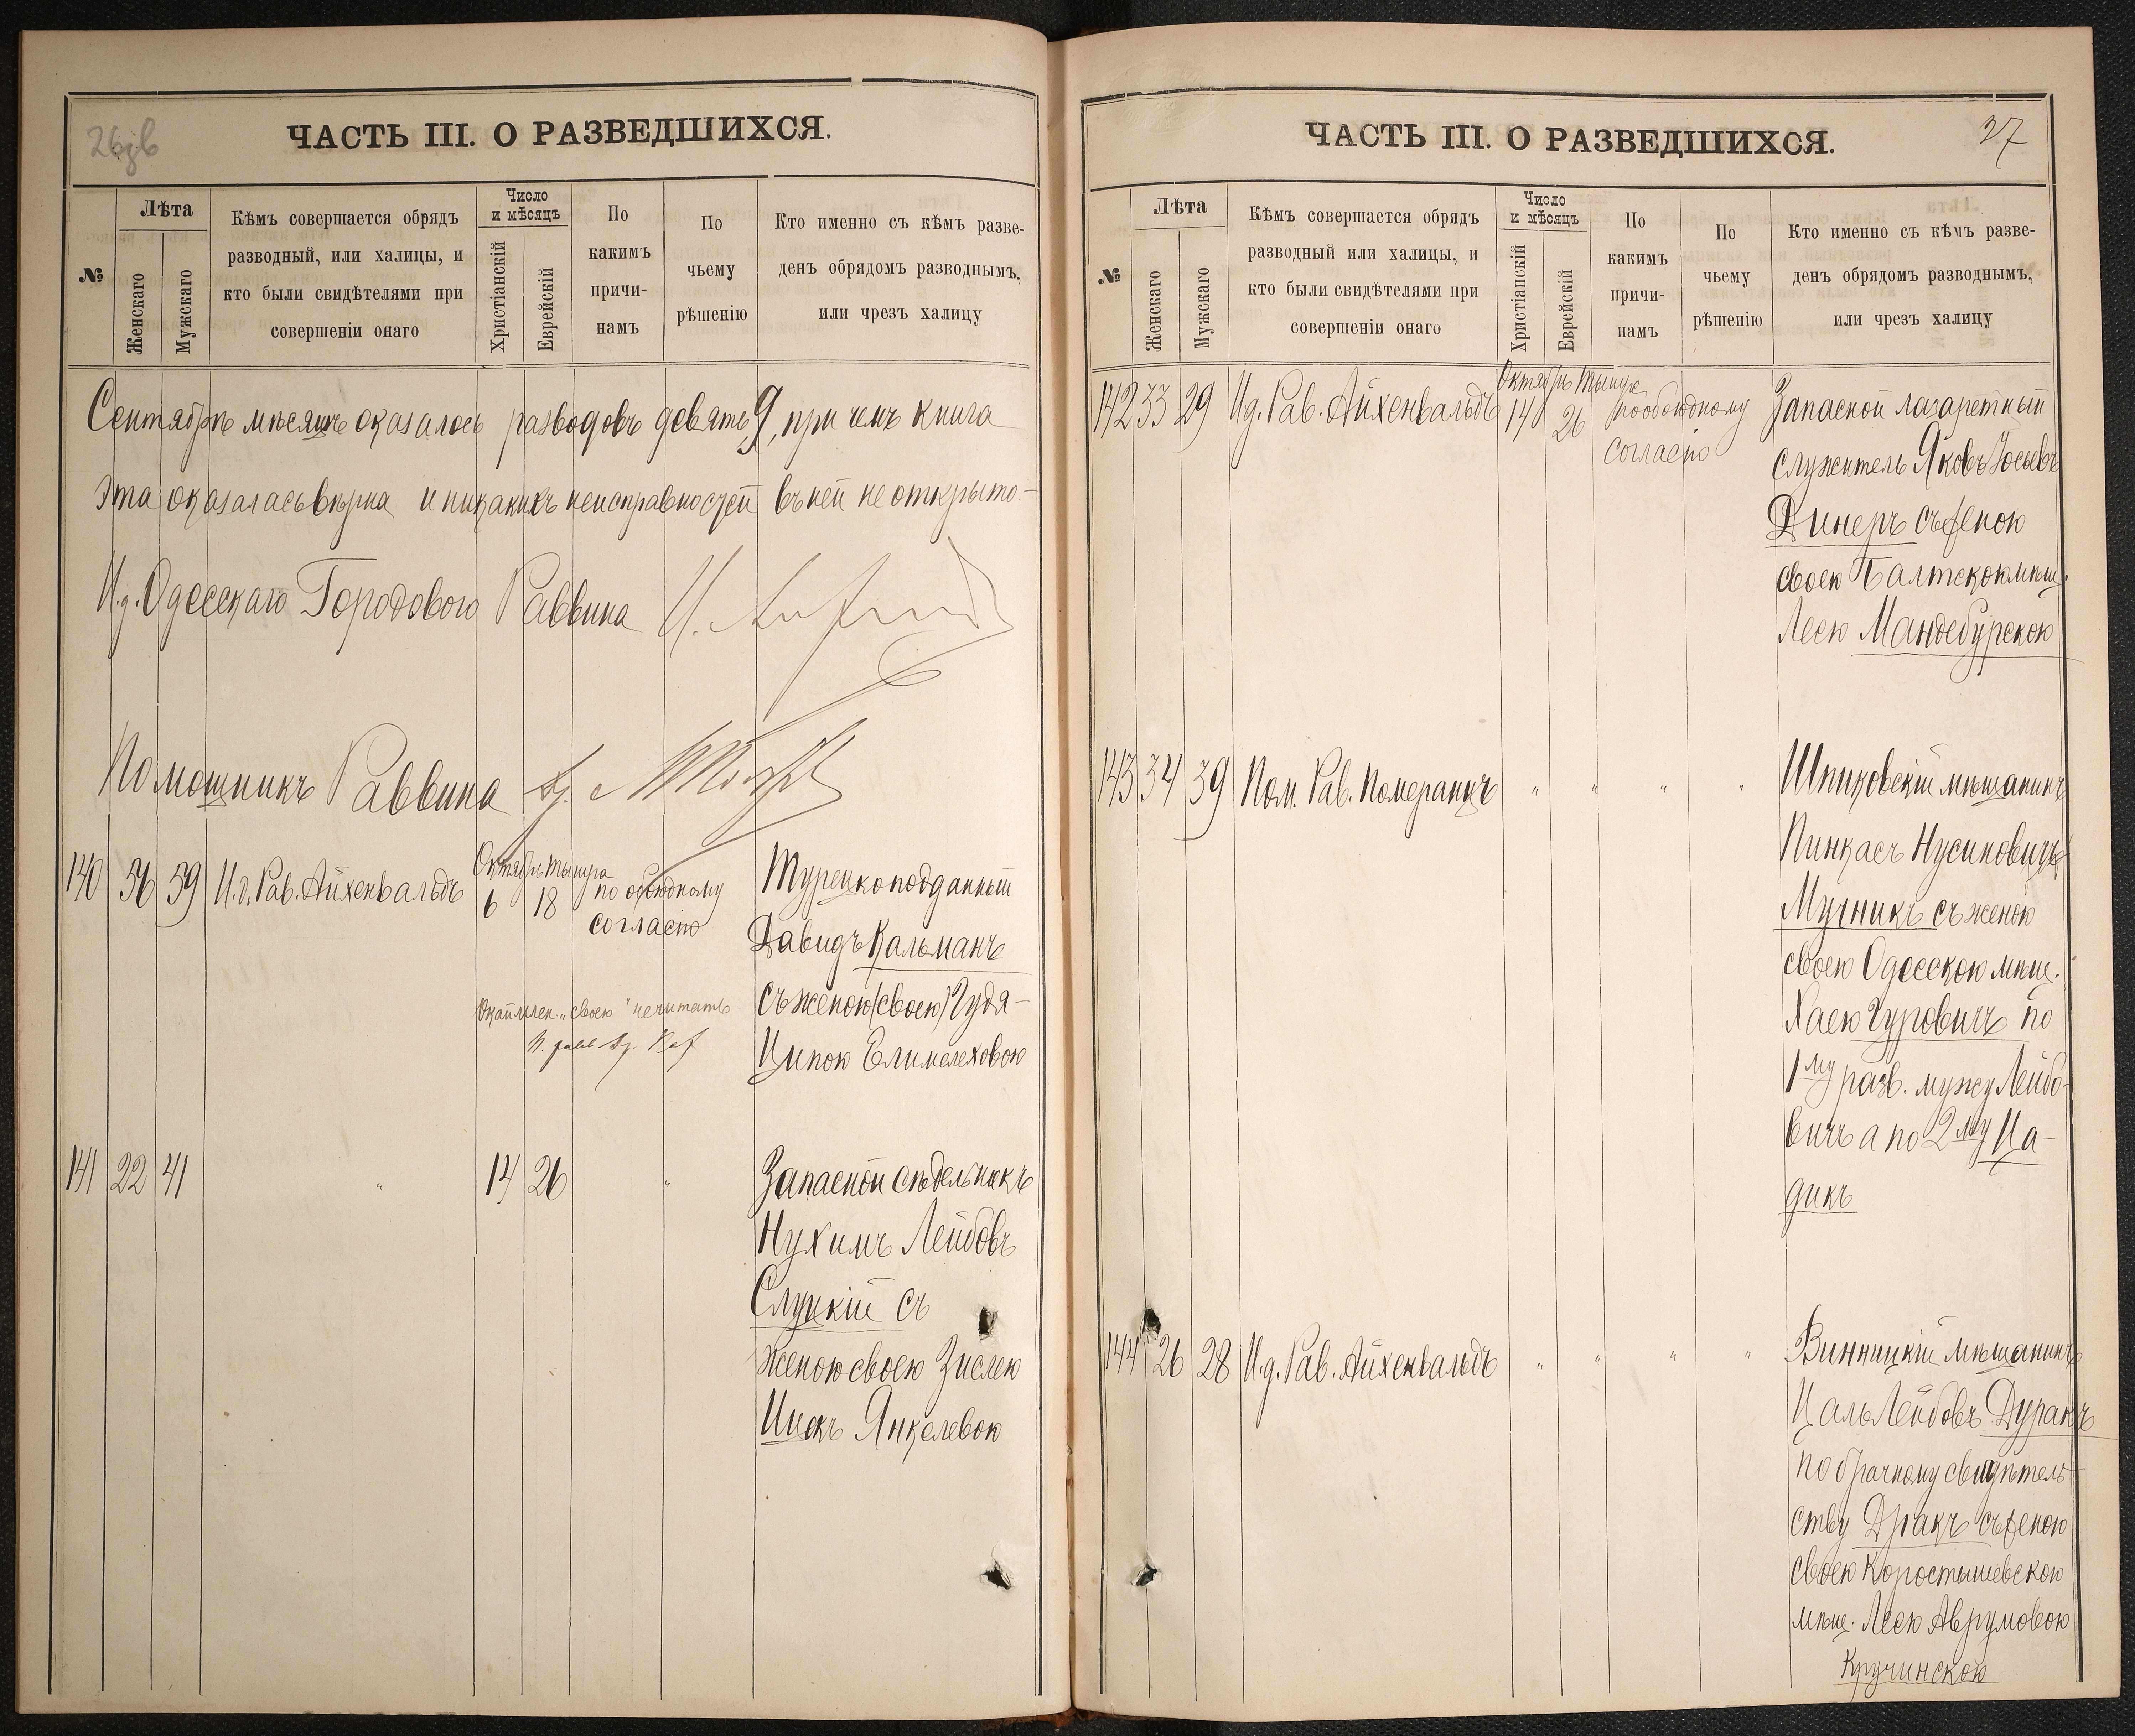 26зв
ЧАСТЬ III. О РАЗВЕДШИХСЯ.
№
Лѣта
Женскаго
Мужскаго
Кѣмъ совершается обрядъ
разводный, или халицы, и
кто были свидѣтелями при
совершеніи онаго
Число
и мѣсяцъ
Христіанскій
Еврейскій
По
какимъ
причи-
намъ
По
чьему
рѣшенію
Кто именно съ кѣмъ разве-
денъ обрядомъ разводнымъ,
или чрезъ халицу
Сентябрь мѣсяцъ оказалось разводовъ девять 9, при чемъ книга
эта оказалась вѣрна и никакихъ неисправностей въ ней не открыто.—
И.д. Одесскаго Городового Раввина
Помощникъ Раввина
140 56 59 И.д. Рав. Айхенвальдъ
Октябрь Тышра
6 18
по обоюдному
согласію
Турецкоподданный
Давидъ Кальманъ
съ женою (своею) Гудя-
Ципою Елимелеховою
Окаймлен. „своею" не читать
141 22 41 " 14 26 "
Запасной сѣдельникъ
Нухимъ Лейбовъ
Слуцкій съ
женою своею Зислею
Цискъ Янкелевою
27
ЧАСТЬ III. О РАЗВЕДШИХСЯ.
№
Лѣта
Женскаго
Мужскаго
Кѣмъ совершается обрядъ
разводный или халицы, и
кто были свидѣтелями при
совершеніи онаго
Число
и мѣсяцъ
Христіанскій
Еврейскій
По
какимъ
причи-
намъ
По
чьему
рѣшенію
Кто именно съ кѣмъ разве-
денъ обрядомъ разводнымъ,
или чрезъ халицу
142 33 29 И.д. Рав. Айхенвальдъ
Октябрь Тышре
14 26
по обоюдному
согласію
Запасной лазаретный
служитель Яковъ Іосьевъ
Динеръ съ женою
своею Балтскою мѣщ.
Леею Мандебурскою
143 34 39 Пом. Рав. Померанцъ " " " "
Шпиковскій мѣщанинъ
Пинкасъ Нусиновичъ
Мучникъ съ женою
своею Одесскою мѣщ.
Хаею Гуровичъ по
1му разв. мужу Лейбо-
вичъ а по 2му Ца-
дикъ
144 26 28 И.д. Рав. Айхенвальдъ " " " "
Винницкій мѣщанинъ
Цаль Лейбовъ Дуракъ
по брачному свидѣтель-
ству Дракъ съ женою
своею Коростышевскою
мѣщ. Леею Аврумовою
Кручинскою